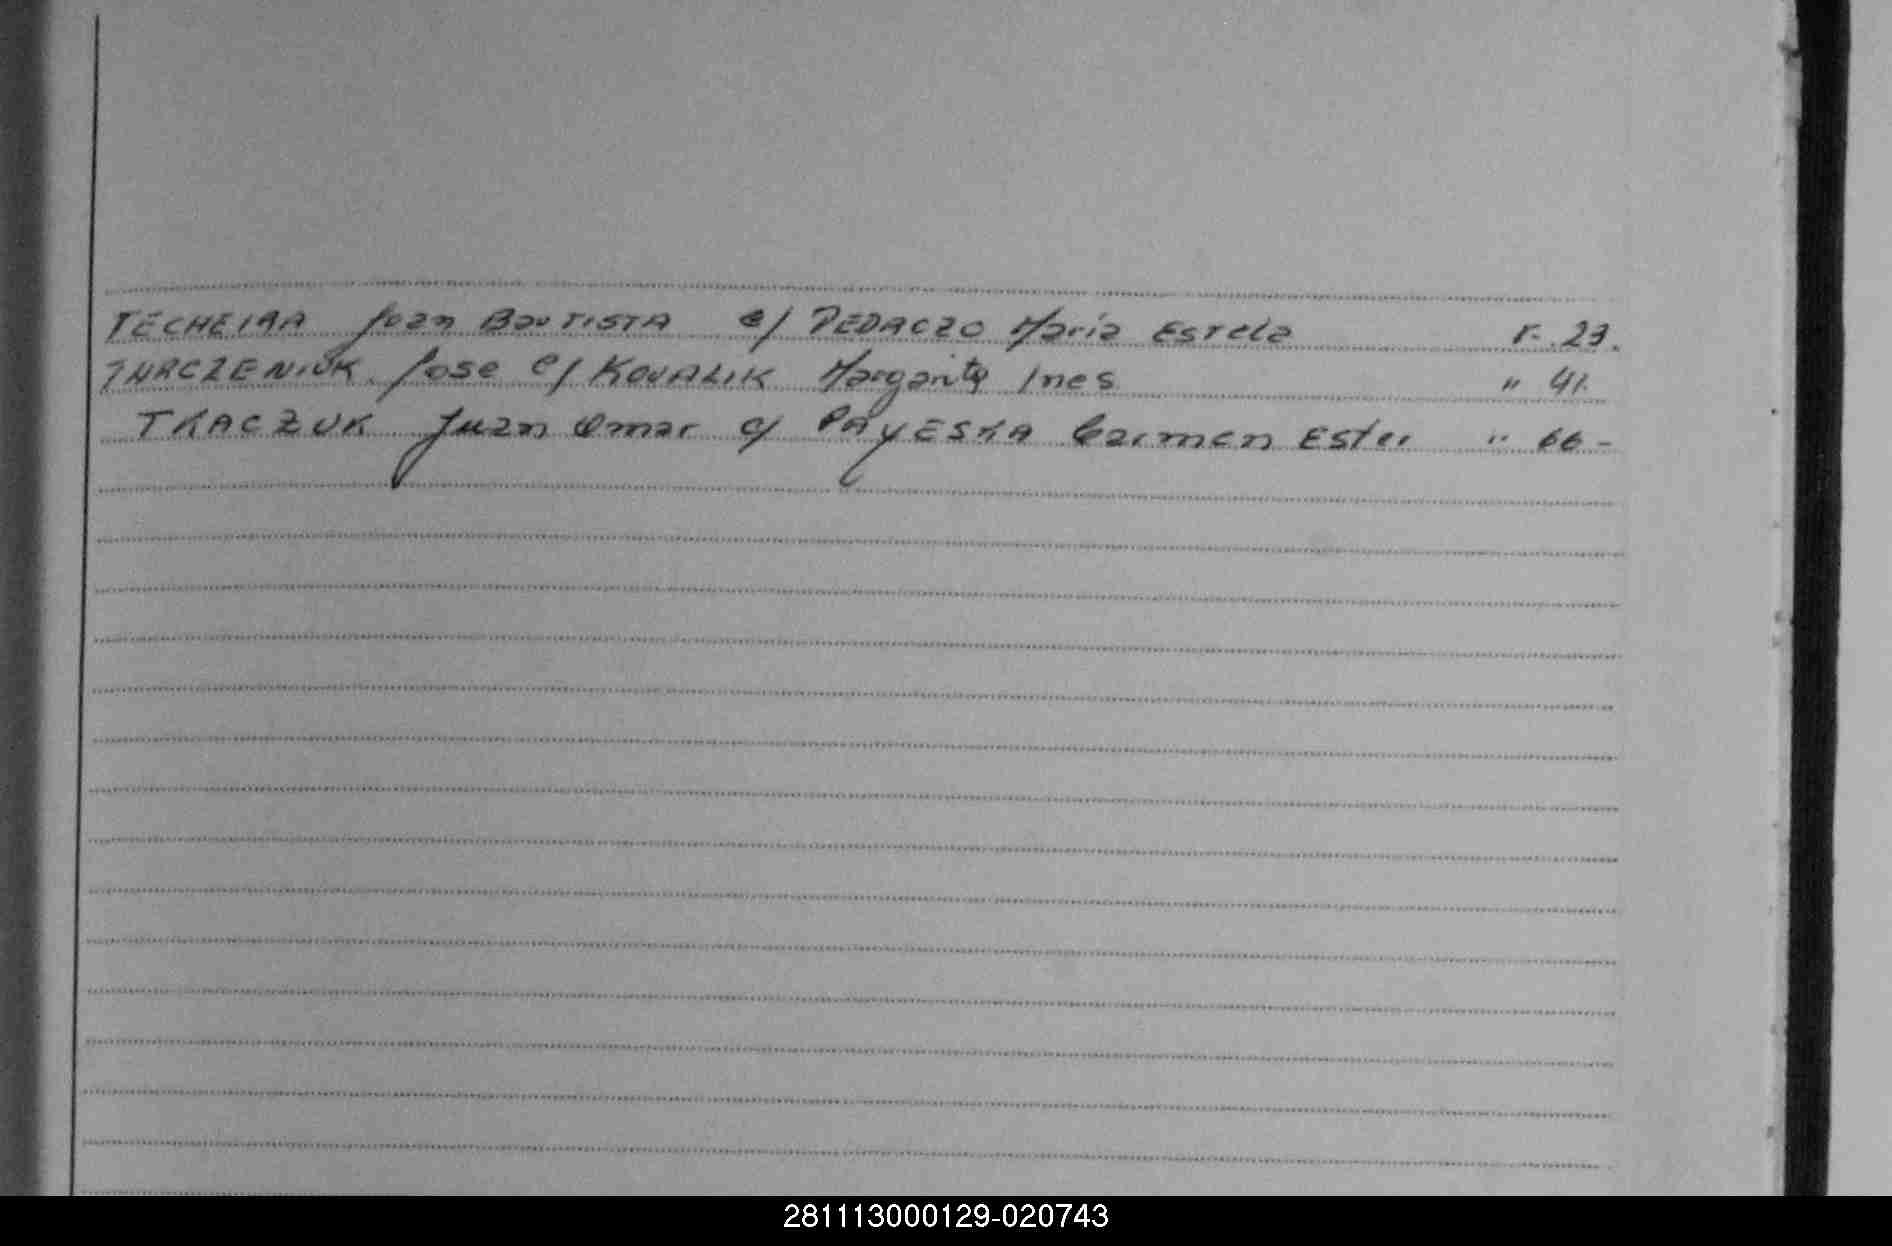 TECHEIRA Juan Bautista c/ PEDACZO Maria Estela F. 23.
TURCZENIUK Jose c/ KOVALIK Margarita Ines " 41.
TKACZUK Juan Omar c/ PAYESKA Carmen Ester " 66-
281113000129-020743